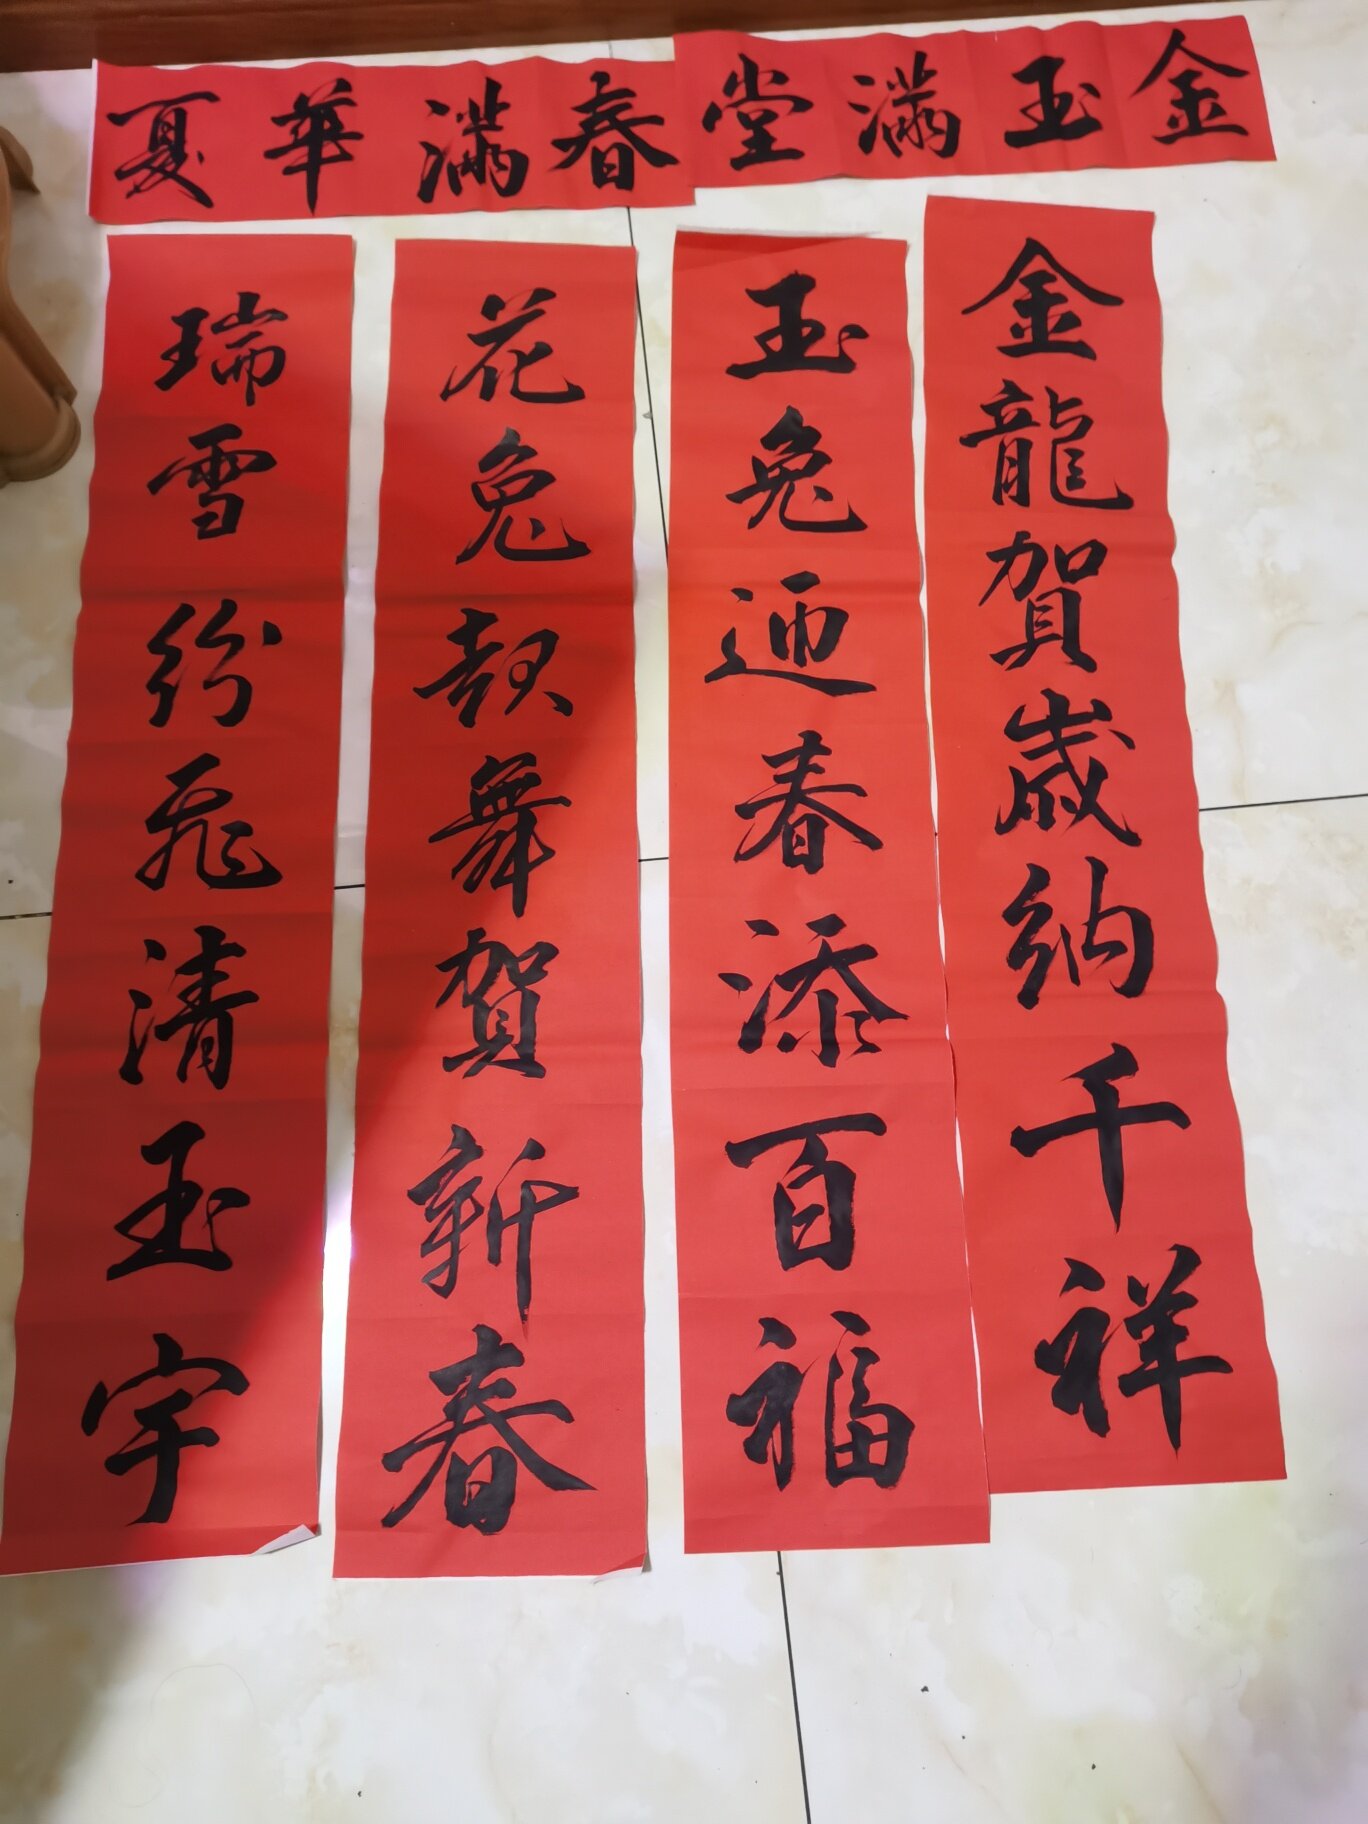 金玉滿堂
春滿華夏
金龍賀歲納千祥
玉兔迎春添百福
花兔鼓舞賀新春
瑞雪紛飛清玉宇